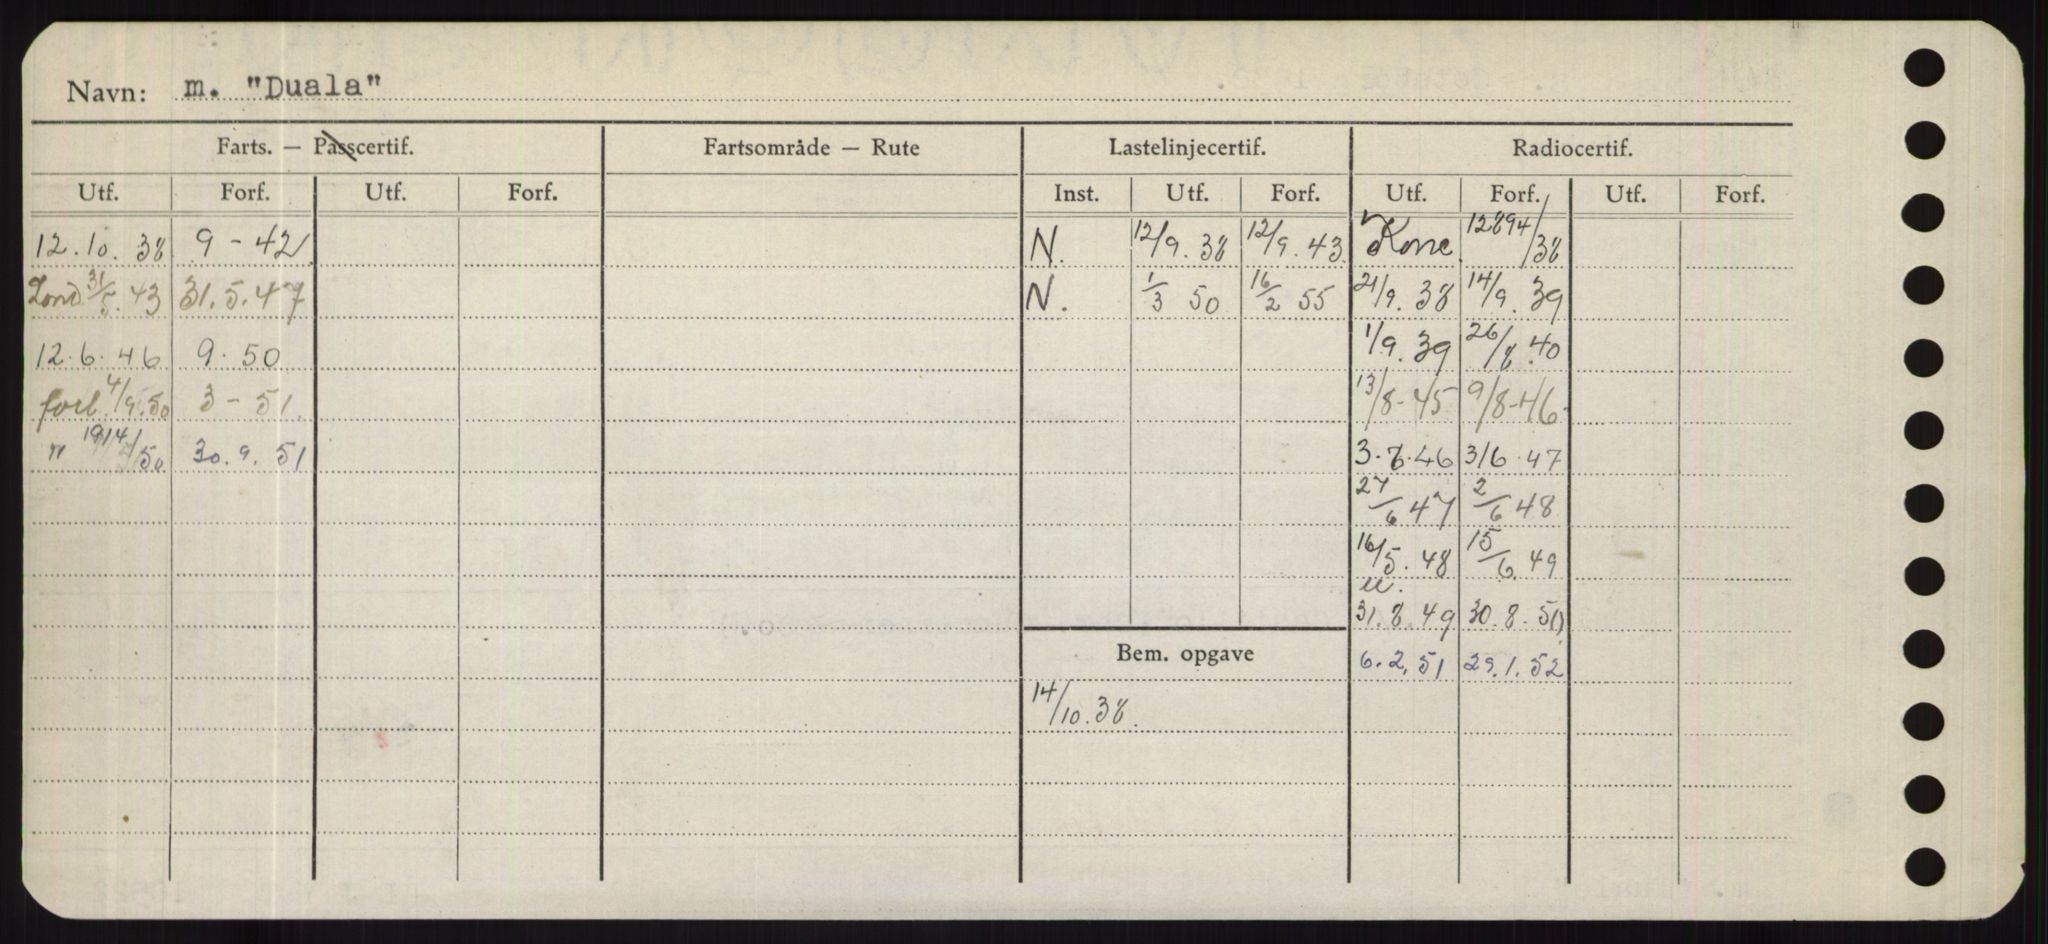 Navn: m. "Duala"
Farts. — Passcertif. Fartsområde — Rute Lastelinjecertif. Radiocertif.
Utf. Forf. Utf. Forf. Inst. Utf. Forf. Utf. Forf. Utf. Forf.
12.10.38 9-42 N. 12/9.38 12/9.43 12894/38
Lond 31/5.43 31.5.47 N. 1/3 50 16/2 55 21/9.38 14/9.39
12.6.46 9.50 1/9.39 26/8.40
forl. 4/9.50 3-51. 13/8-45 9/8-46
" 30.9.51 46 3/6.47
27/6 47 2/6 48
16/5.48 15/6.49
31.8.49 30.8.50
Bem. opgave 6.2.51 29.1.52
14/10.38.